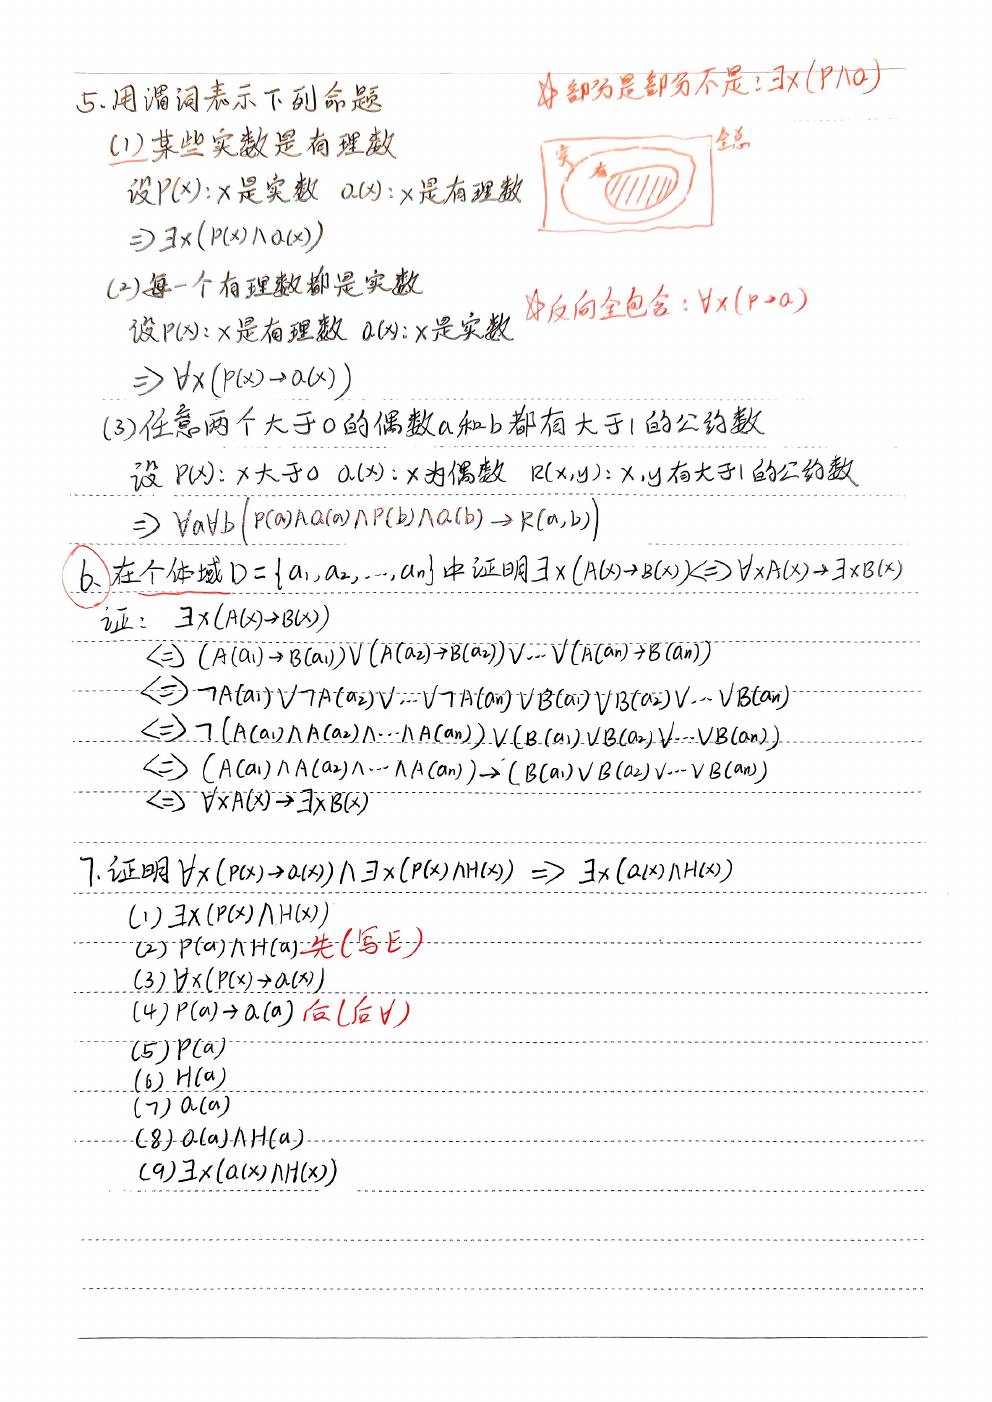 ☆部分是部分不是：∃x(P∧Q)
5.用谓词表示下列命题
(1)某些实数是有理数
全总
实
有
设P(x)：x是实数 Q(x)：x是有理数
=>∃x(P(x)∧Q(x))
(2)每一个有理数都是实数
☆反向全包含：∀x(P→Q)
设P(x)：x是有理数 Q(x)：x是实数
=>∀x(P(x)→Q(x))
(3)任意两个大于0的偶数a和b都有大于1的公约数
设 P(x)：x大于0 Q(x)：x为偶数 R(x,y)：x,y有大于1的公约数
=>∀a∀b(P(a)∧Q(a)∧P(b)∧Q(b)→R(a,b))
6.在个体域D={a₁,a₂,…,aₙ}中证明∃x(A(x)→B(x))<=>∀xA(x)→∃xB(x)
证：∃x(A(x)→B(x))
<=>(A(a₁)→B(a₁))∨(A(a₂)→B(a₂))∨…∨(A(aₙ)→B(aₙ))
<=>¬A(a₁)∨¬A(a₂)∨…∨¬A(aₙ)∨B(a₁)∨B(a₂)∨…∨B(aₙ)
<=>¬(A(a₁)∧A(a₂)∧…∧A(aₙ))∨(B(a₁)∨B(a₂)∨…∨B(aₙ))
<=>(A(a₁)∧A(a₂)∧…∧A(aₙ))→(B(a₁)∨B(a₂)∨…∨B(aₙ))
<=>∀xA(x)→∃xB(x)
7.证明∀x(P(x)→Q(x))∧∃x(P(x)∧H(x)) => ∃x(Q(x)∧H(x))
(1)∃x(P(x)∧H(x))
(2)P(a)∧H(a) 先(写E)
(3)∀x(P(x)→Q(x))
(4)P(a)→Q(a) 后(后∀)
(5)P(a)
(6)H(a)
(7)Q(a)
(8)Q(a)∧H(a)
(9)∃x(Q(x)∧H(x))